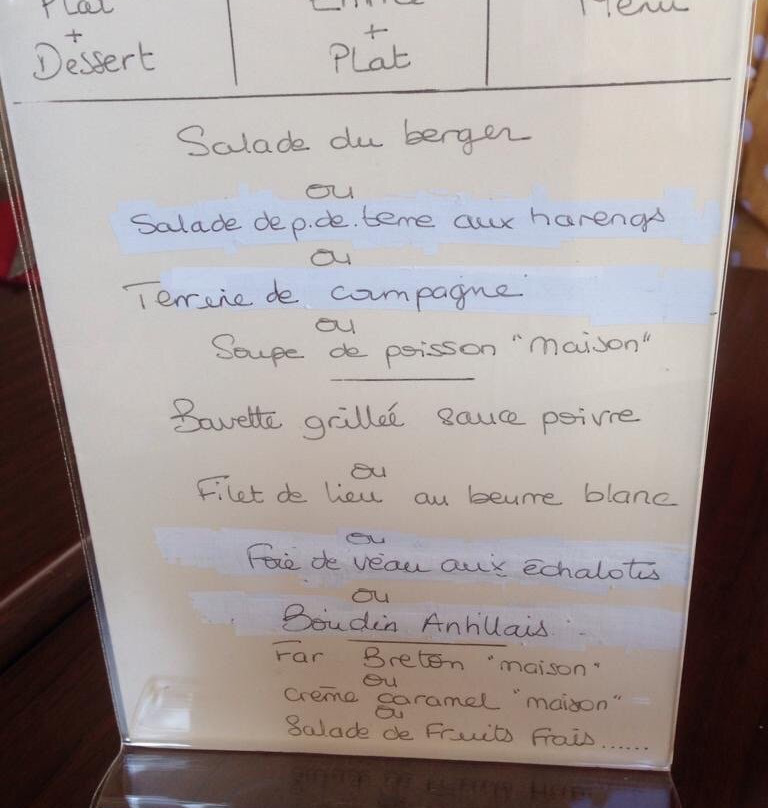 Plat Entrée Menu
+ +
Dessert Plat
Salade du berger
ou
Salade de p.de.terre aux harengs
ou
Terrine de campagne
ou
Soupe de poisson "maison"
Bavette grilleé sauce poivre
ou
Filet de lieu au beurre blanc
ou
Foie de veau aux échalotes
ou
Boudin Antillais
Far Breton "maison"
ou
Crème caramel "maison"
ou
Salade de Fruits Frais......